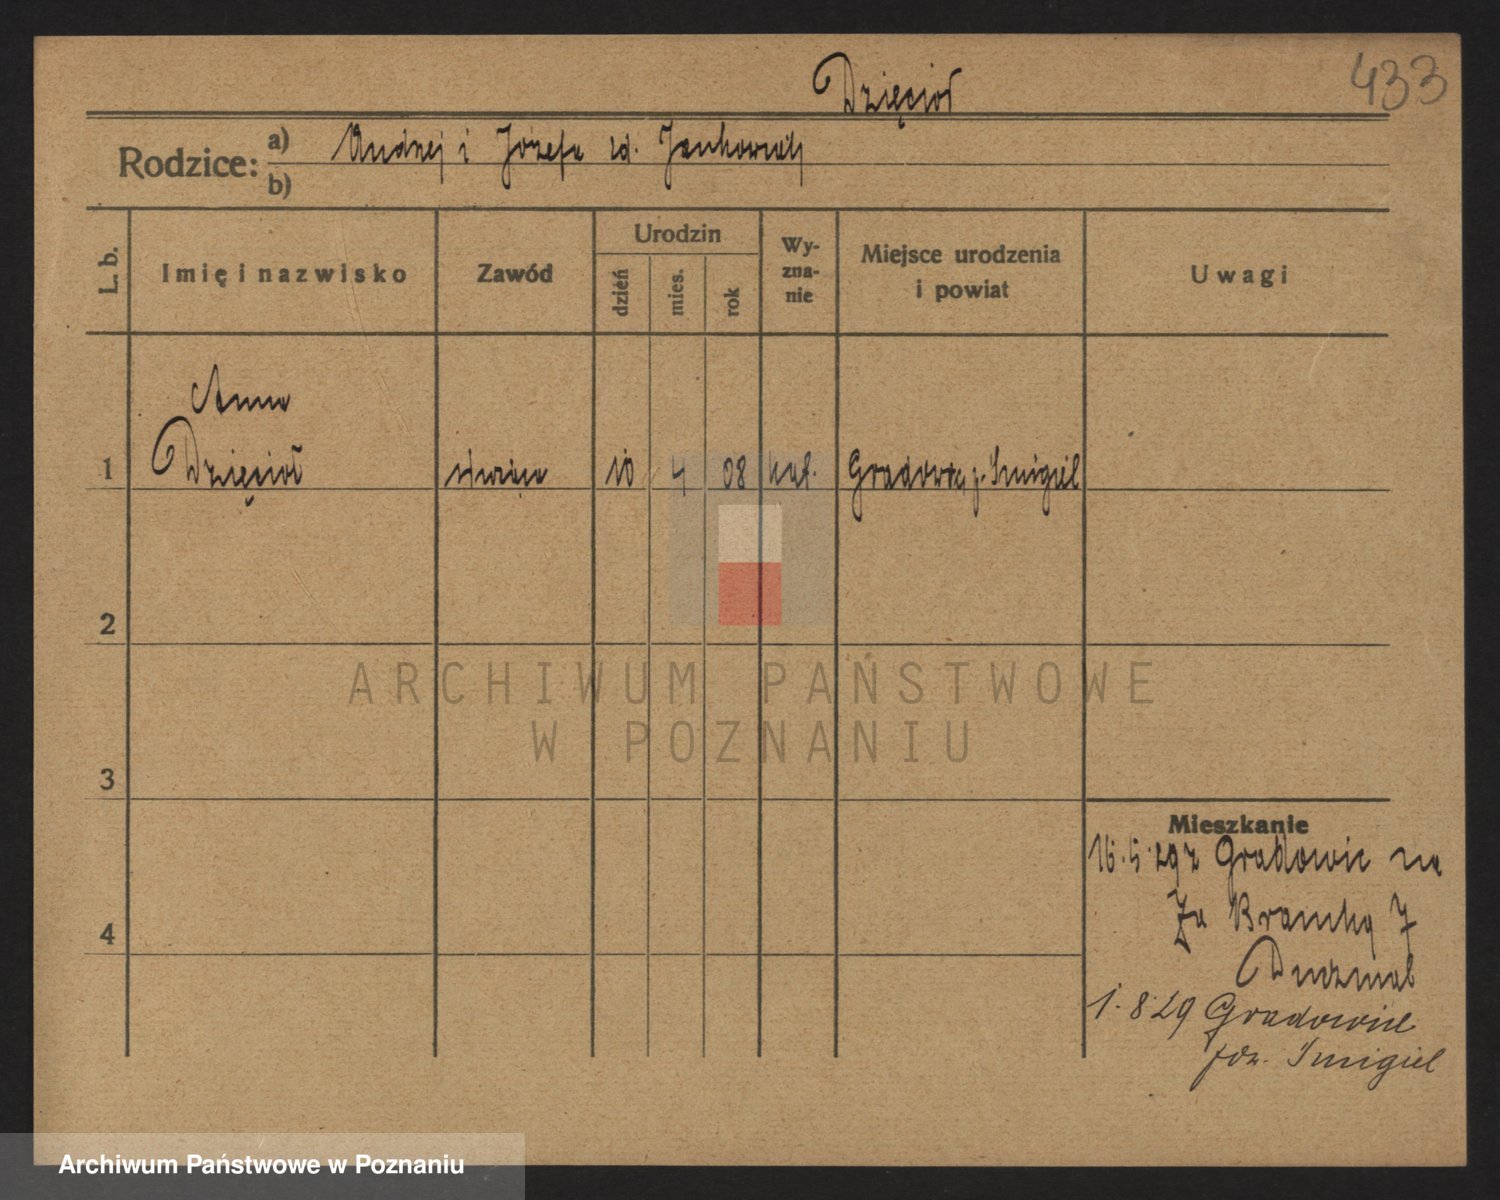 433
Dzięcioł
Rodzice:
a) Andrzej i Józefa zd. Jankowiak
b)
L. b.
Imię i nazwisko
Zawód
Urodzin
dzień
mies.
rok
Wy-
zna-
nie
Miejsce urodzenia
i powiat
Uwagi
Anna
1 Dzięcioł służąca 10 4 08 kat. Gradowice p. Śmigiel
2
3
4
Mieszkanie
16.5.29 z Gradowic na
Za Bramką 7
1.8.29 Gradowice
pow. Śmigiel
ARCHIWUM PAŃSTWOWE
W POZNANIU
Archiwum Państwowe w Poznaniu